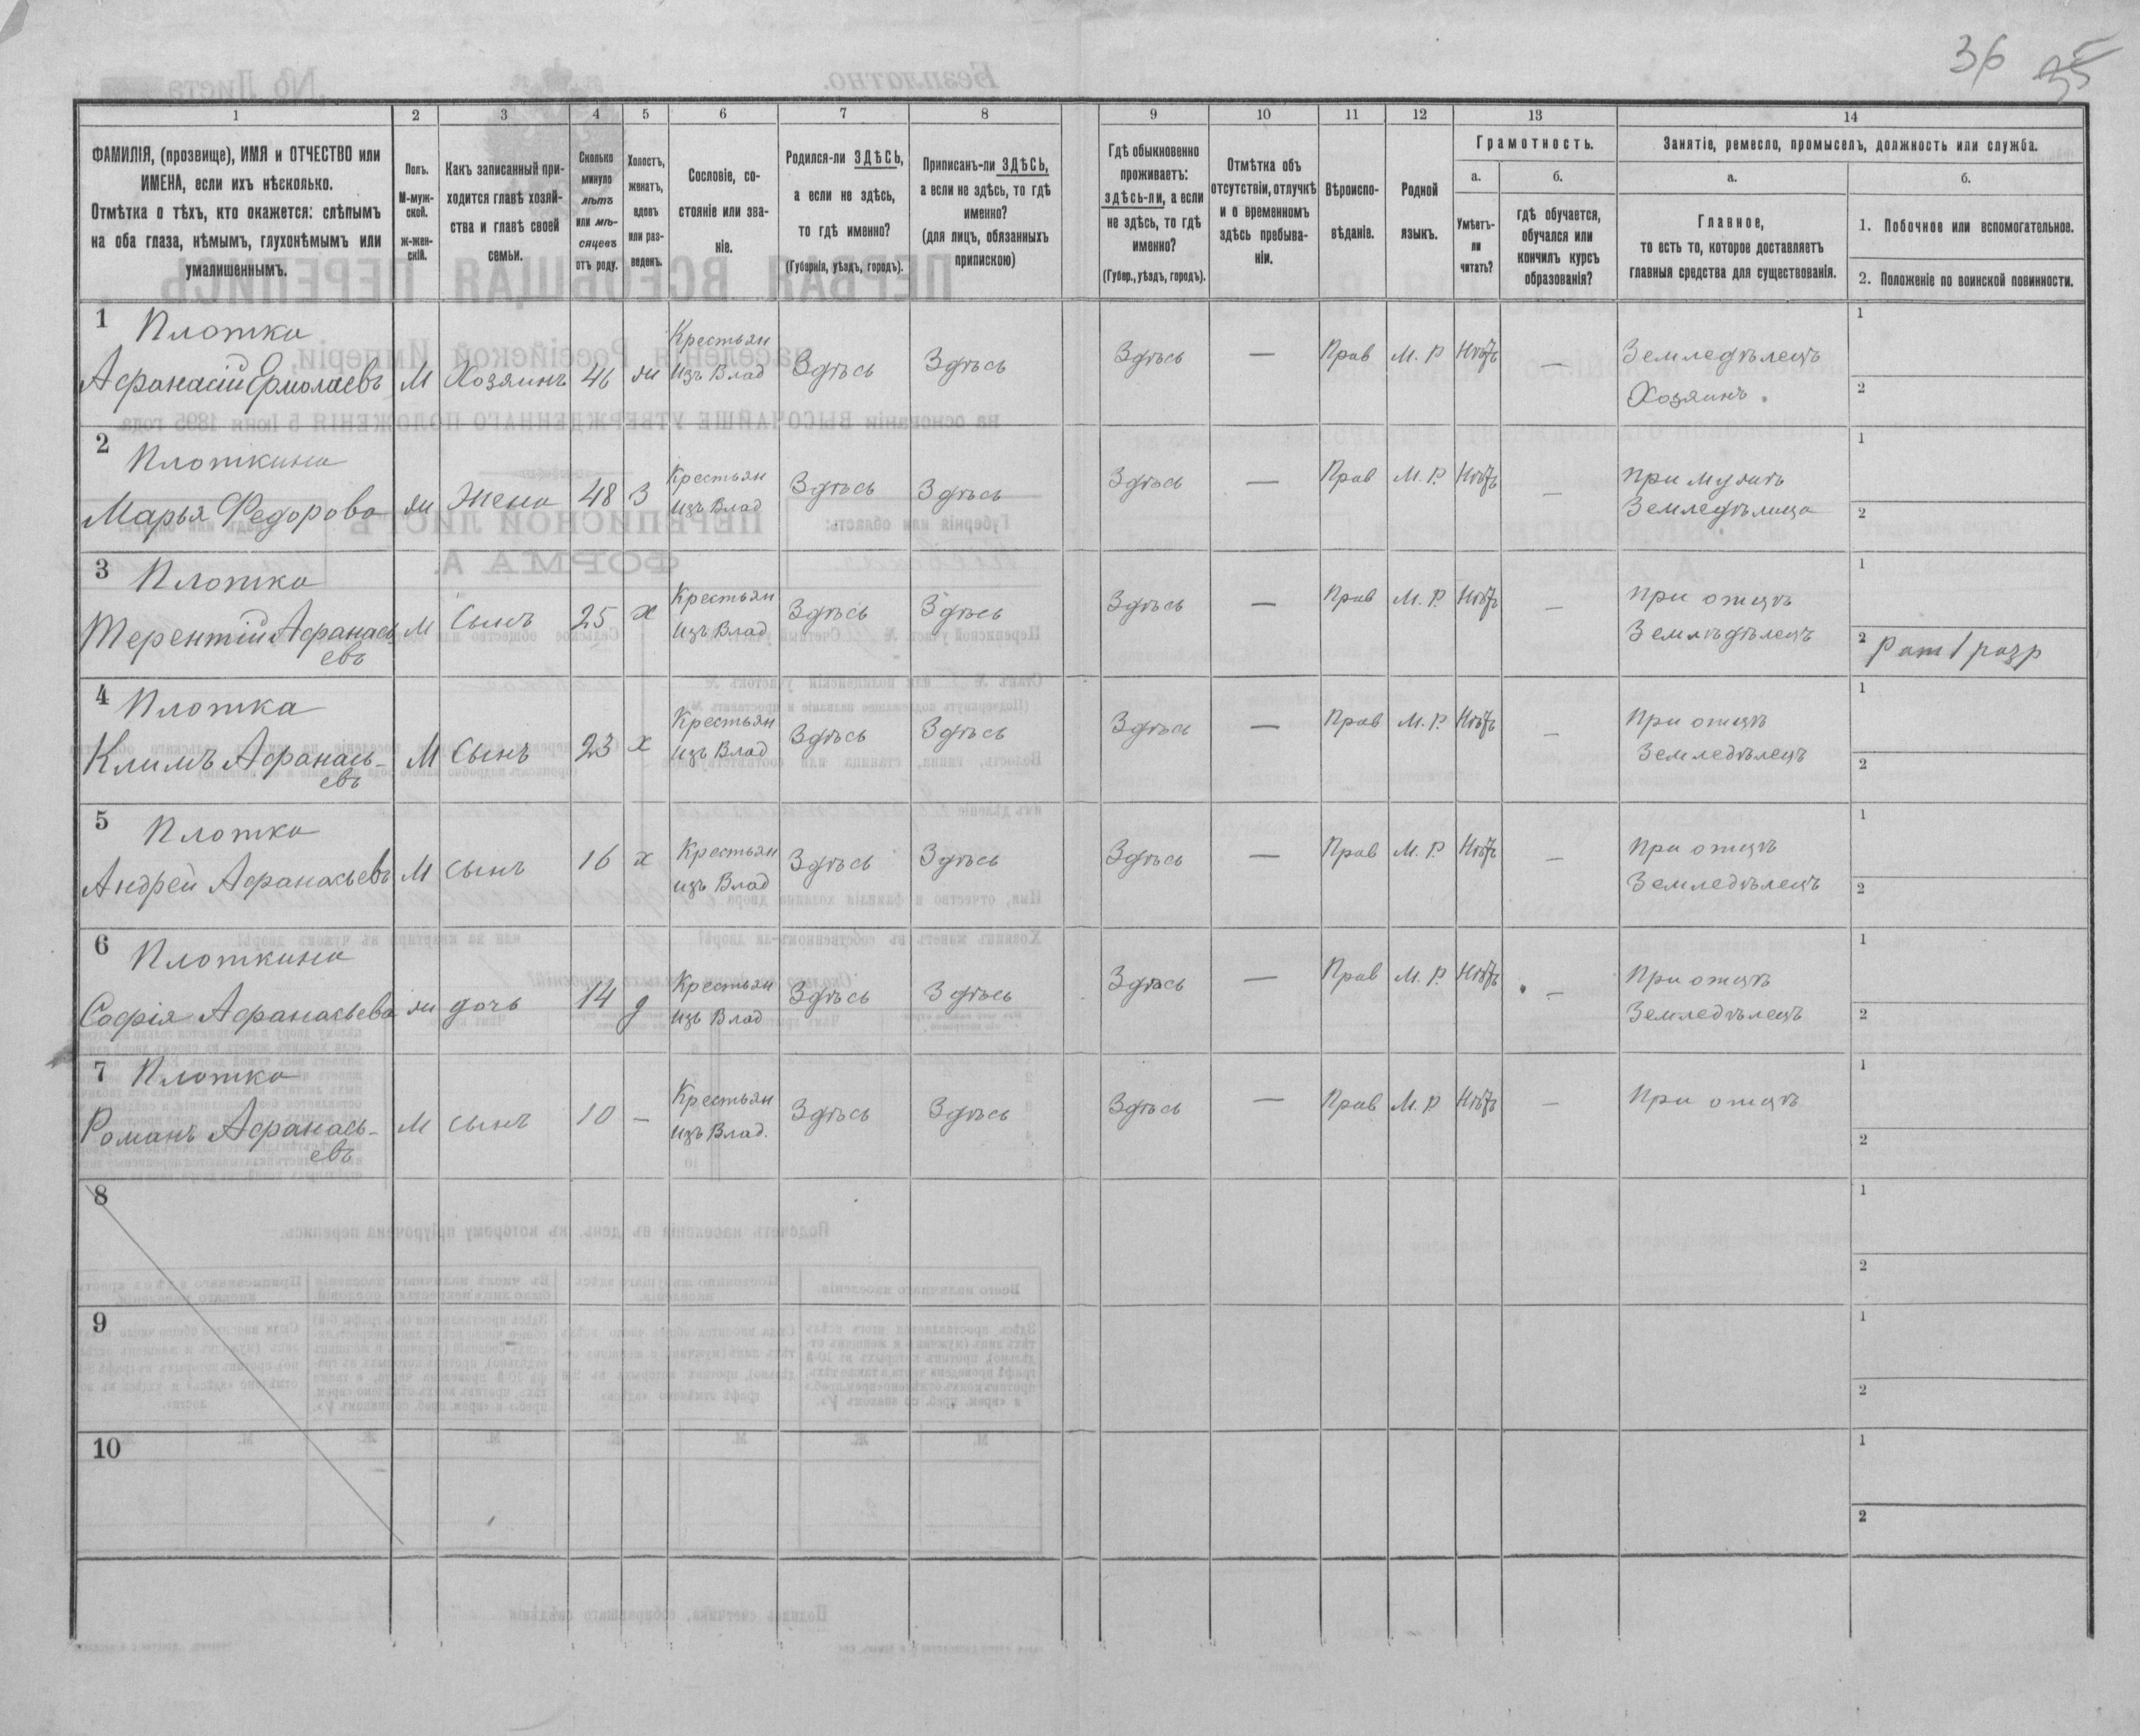 36 35
1 2 3 4 5 6 7 8 9 10 11 12 13 14
ФАМИЛІЯ, (прозвище), ИМЯ и ОТЧЕСТВО или
ИМЕНА, если ихъ нѣсколько.
Отмѣтка о тѣхъ, кто окажется: слѣпымъ
на оба глаза, нѣмымъ, глухонѣмымъ или
умалишеннымъ.
Полъ.
М-муж-
ской.
ж-жен-
скій.
Какъ записанный при-
ходится главѣ хозяй-
ства и главѣ своей
семьи.
Сколько
минуло
лѣтъ
или мѣ-
сяцевъ
отъ роду.
Холостъ,
женатъ,
вдовъ
или раз-
веденъ.
Сословіе, со-
стояніе или зва-
ніе.
Родился-ли ЗДѢСЬ,
а если не здѣсь,
то гдѣ именно?
(Губернія, уѣздъ, городъ).
Приписанъ-ли ЗДѢСЬ,
а если не здѣсь, то гдѣ
именно?
(для лицъ, обязанныхъ
припискою)
Гдѣ обыкновенно
проживаетъ:
здѣсь-ли, а если
не здѣсь, то гдѣ
именно?
(Губер., уѣздъ, городъ).
Отмѣтка объ
отсутствіи, отлучкѣ
и о временномъ
здѣсь пребыва-
ніи.
Вѣроиспо-
вѣданіе.
Родной
языкъ.
Грамотность.
а. б.
Умѣетъ-
ли
читать?
гдѣ обучается,
обучался или
кончилъ курсъ
образованія?
Занятіе, ремесло, промыселъ, должность или служба.
а. б.
Главное,
то есть то, которое доставляетъ
главныя средства для существованія.
1. Побочное или вспомогательное.
2. Положеніе по воинской повинности.
1 Плотка
Афанасій Ермолаевъ М Хозяинъ 46 ж Крестьян
изъ Влад Здѣсь Здѣсь Здѣсь — Прав М. Р. Нѣтъ — Земледѣлецъ
Хозяинъ.
1
2
2 Плоткина
Марья Федорова ж Жена 48 З Крестьян
изъ Влад Здѣсь Здѣсь Здѣсь — Прав М. Р. Нѣтъ — при мужѣ
Земледѣлица
1
2
3 Плотка
Терентій Афанась
евъ М Сынъ 25 х Крестьян
изъ Влад Здѣсь Здѣсь Здѣсь — Прав М. Р. Нѣтъ — при отцѣ
Земледѣлецъ
1
2 Рат 1 разр
4 Плотка
Климъ Афанась-
евъ М Сынъ 23 х Крестьян
изъ Влад Здѣсь Здѣсь Здѣсь — Прав М. Р. Нѣтъ — При отцѣ
Земледѣлецъ
1
2
5 Плотка
Андрей Афанасьевъ М сынъ 16 х Крестьян
изъ Влад Здѣсь Здѣсь Здѣсь — Прав М. Р. Нѣтъ — При отцѣ
Земледѣлецъ
1
2
6 Плоткина
Софія Афанасьева ж дочь 14 д Крестьян
изъ Влад Здѣсь Здѣсь Здѣсь — Прав М. Р. Нѣтъ — При отцѣ
Земледѣлецъ
1
2
7 Плотка
Романъ Афанась-
евъ М сынъ 10 — Крестьян
изъ Влад. Здѣсь Здѣсь Здѣсь — Прав М. Р Нѣтъ — При отцѣ
1
2
8
1
2
9
1
2
10
1
2